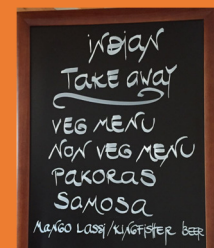 INDIAN
TAKE AWAY
VEG MENU
NON VEG MENU
PAKORAS
SAMOSA
MANGO LASSI/KINGFISHER BEER